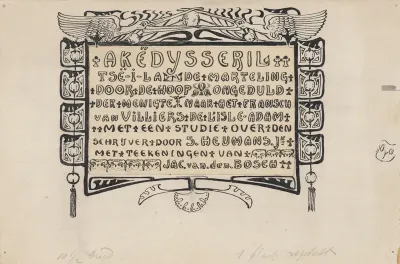 AKËDYSSERIL
TSE-I-LA EN DE MARTELING
DOOR DE HOOP ONGEDULD
DER MENIGTE NAAR HET FRANSCH
VAN VILLIERS DE L'ISLE-ADAM
MET EEN STUDIE OVER DEN
SCHRIJVER DOOR S. HEIJMANS, Jr
MET TEEKENINGEN VAN
JAC. van den BOSCH